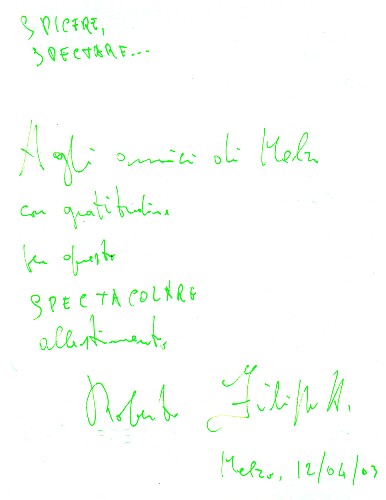 SPICERE,
SPECTARE...
Agli amici di Melzo
con gratitudine
per questo
SPECTACOLARE
allestimento
Roberto Filippetti
Melzo, 12/04/03